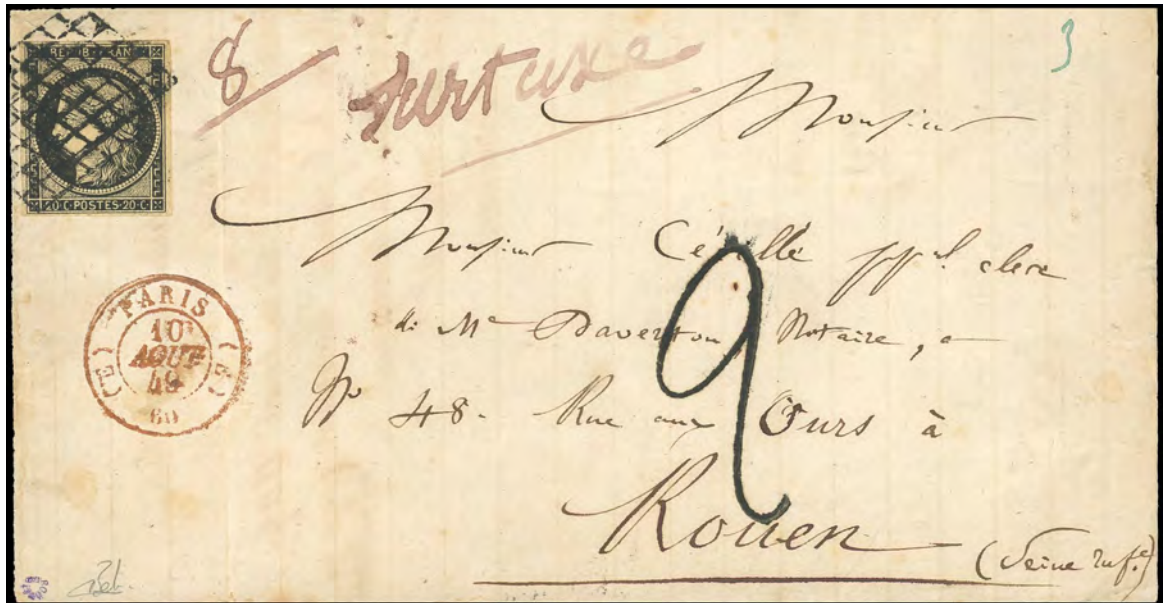 REPUB FRANC
20·C·POSTES·20·C
8 surtaxe
3
Monsieur
Monsieur
clerc
de Me Notaire, à
No 48. Rue aux Ours à
Rouen
(Seine infre)
2
PARIS
(E) (E)
10
AOUT
49
60